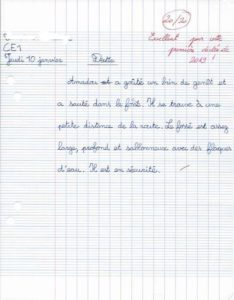 20/20
Excellent pour cette
première dictée de
2019 !
CE1
Jeudi 10 janvier
Dictée
Amadou est a goûté un brin de genêt et
a sauté dans le fossé. Il se trouve à une
petite distance de la route. Le fossé est assez
large, profond et sablonneux avec des flaques
d'eau. Il est en sécurité.